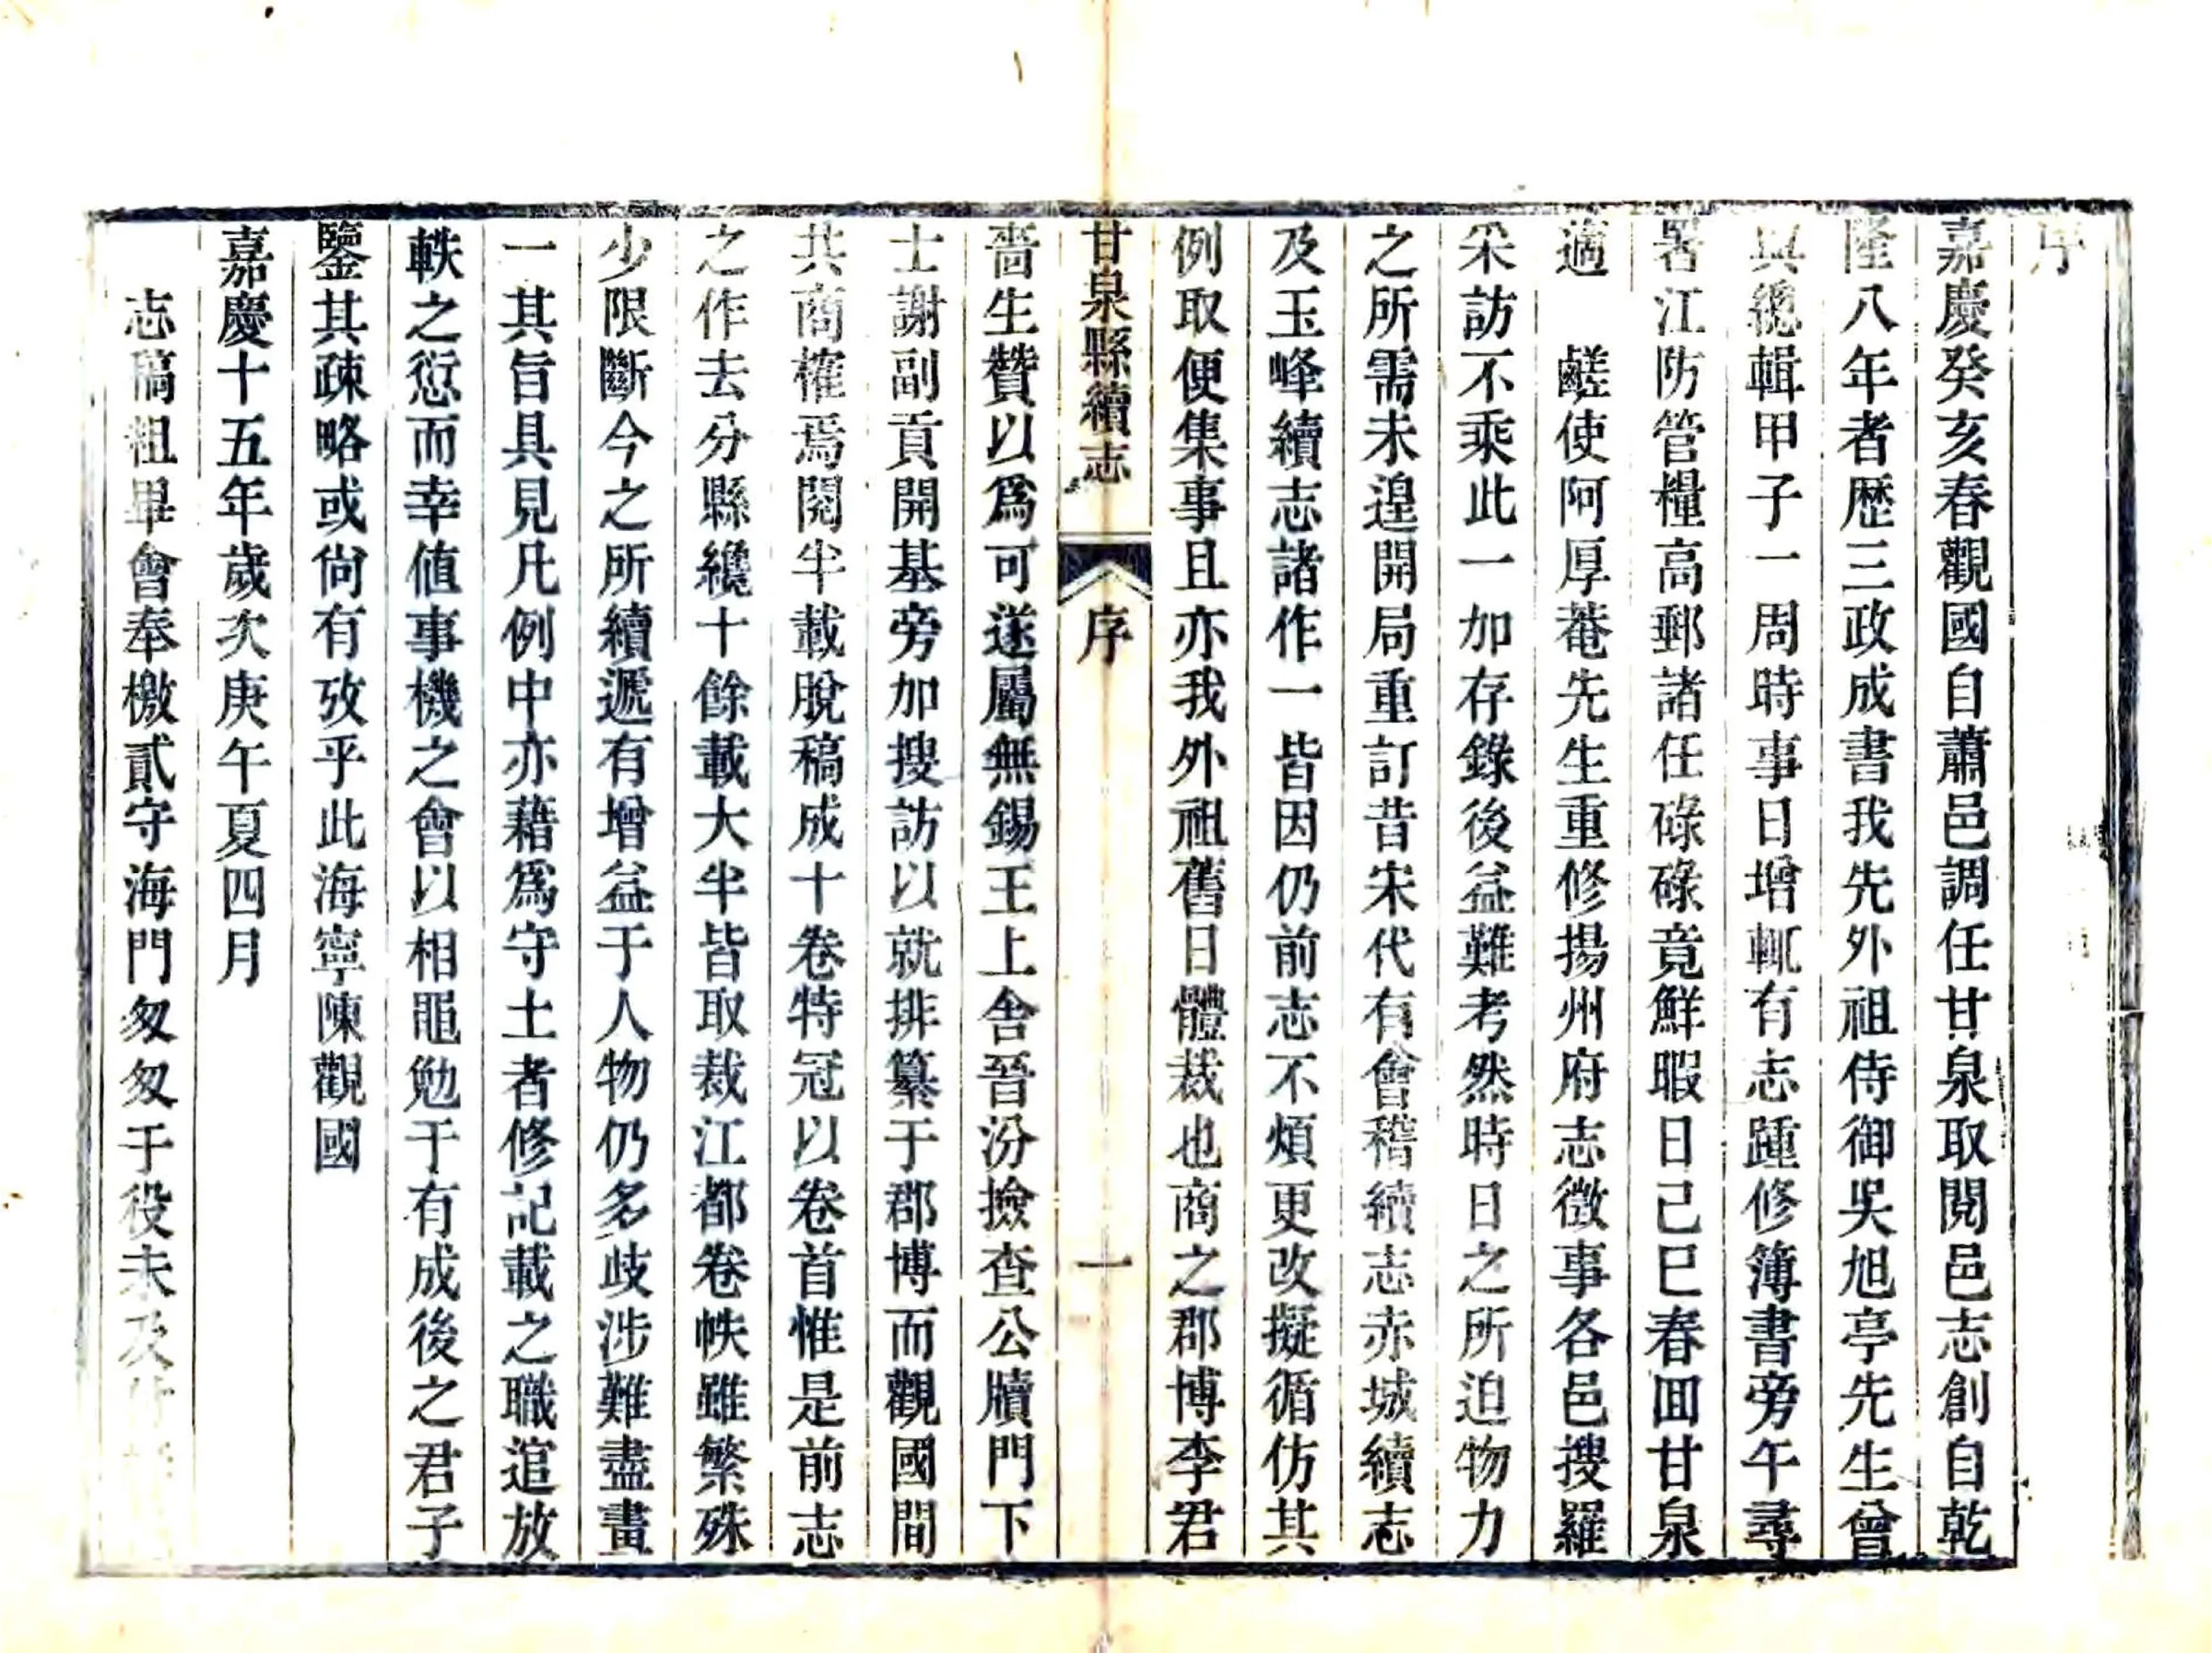 序
嘉慶癸亥春觀國自蕭邑調任甘泉取閱邑志創自乾
隆八年者歷三政成書我先外祖侍御吳旭亭先生曾
與總輯甲子一周時事日增輒有志踵修簿書旁午尋
署江防管糧高郵諸任碌碌竟鮮暇日己巳春囬甘泉
適　鹺使阿厚菴先生重修揚州府志徵事各邑搜羅
采訪不乘此一加存錄後益難考然時日之所迫物力
之所需未遑開局重訂昔宋代有會稽續志赤城續志
及玉峰續志諸作一皆因仍前志不煩更改擬循仿其
例取便集事且亦我外祖舊日體裁也商之郡博李君
甘泉縣續志　序　一
嗇生贊以為可遂屬無錫王上舍晉汾撿查公牘門下
士謝副貢開基旁加搜訪以就排纂于郡博而觀國間
共商榷焉閱半載脫稿成十卷特冠以卷首惟是前志
之作去分縣纔十餘載大半皆取裁江都卷帙雖繁殊
少限斷今之所續遞有增益于人物仍多歧涉難盡畫
一其旨具見凡例中亦藉為守土者修記載之職逭放
軼之愆而幸値事機之會以相黽勉于有成後之君子
鑒其疎略或尙有攷乎此海寧陳觀國
嘉慶十五年歲次庚午夏四月
志稿粗畢會奉檄貳守海門匆匆于役未及